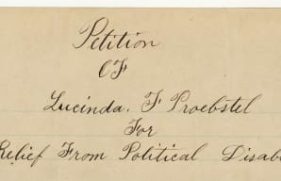 Petition
OF
Lucinda. F Proebstel
For
Relief From Political Disab